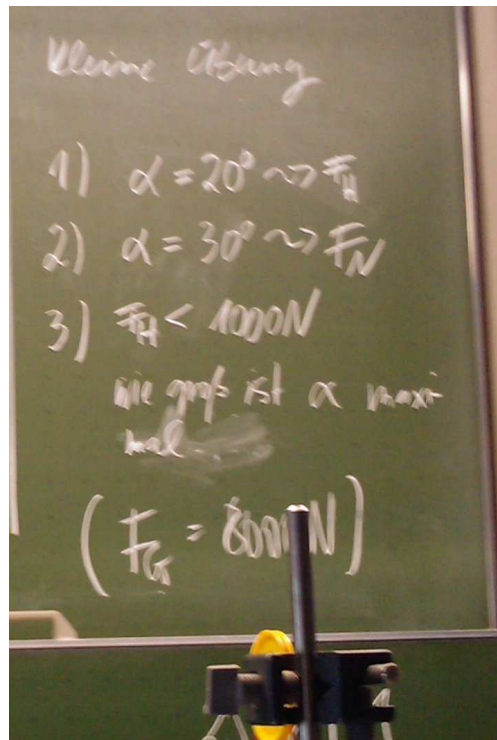 Kleine Übung
1) α = 20° ⇝ F_H
2) α = 30° ⇝ F_N
3) F_H < 1000N
wie groß ist α maxi-
mal
(F_G = 8000N)